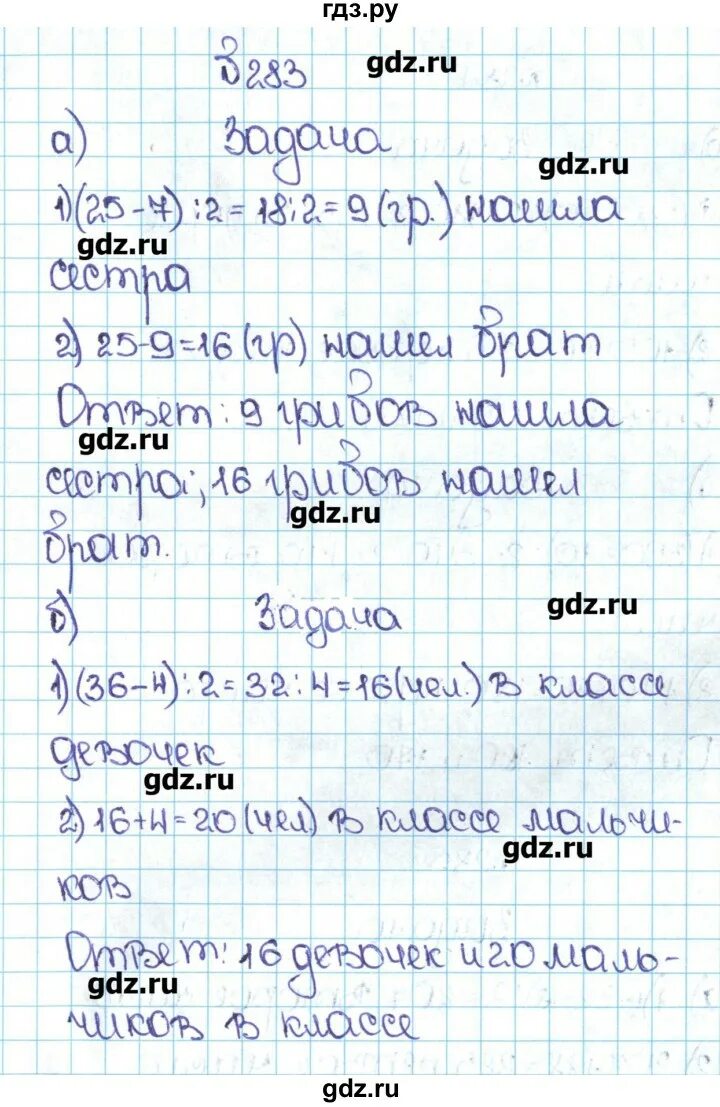 гдз.ру
В 283 gdz.ru
а) Задача
gdz.ru
1) (25-7):2=18:2=9 (гр.) нашла
gdz.ru
сестра
2) 25-9=16 (гр) нашел брат
Ответ: 9 грибов нашла
gdz.ru
сестра; 16 грибов нашел
gdz.ru
брат.
б) Задача gdz.ru
1) (36-4):2=32:4=16(чел.) в классе
девочек
gdz.ru
2) 16+4=20 (чел) в классе мальчи-
gdz.ru
ков
Ответ: 16 девочек и 20 маль-
gdz.ru
чиков в классе
gdz.ru